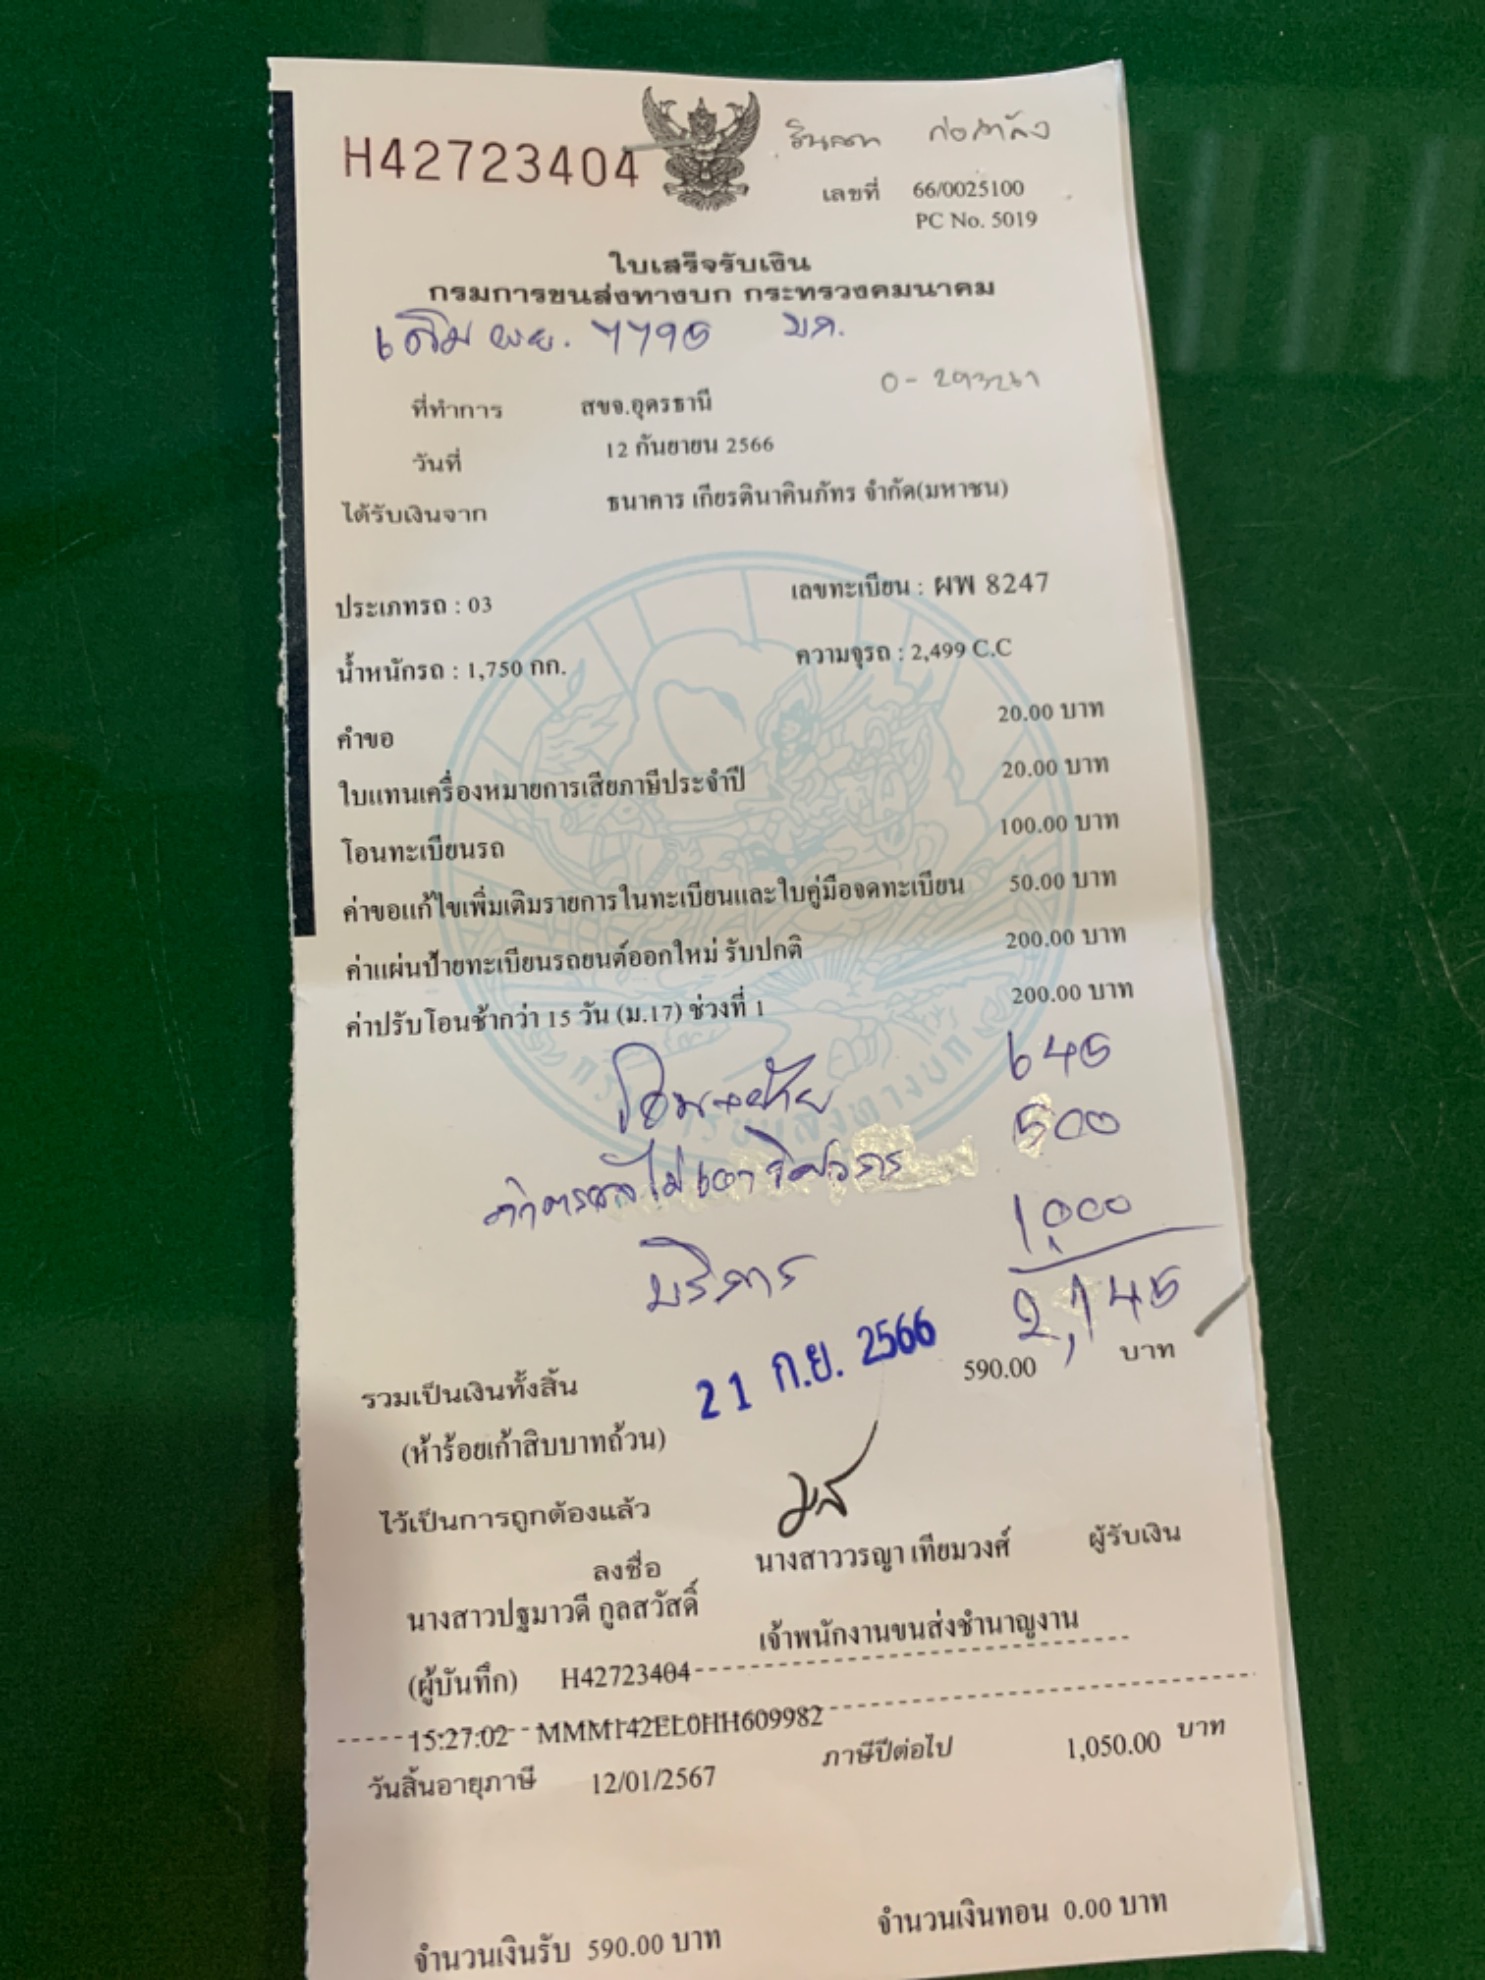 H42723404
เลขที่ 66/0025100
PC No. 5019
ใบเสร็จรับเงิน
กรมการขนส่งทางบก กระทรวงคมนาคม
เดิม ผย. 7795 มค.
ที่ทำการ สขจ.อุดรธานี
วันที่ 12 กันยายน 2566
ได้รับเงินจาก ธนาคาร เกียรตินาคินภัทร จำกัด(มหาชน)
ประเภทรถ : 03 เลขทะเบียน : ผพ 8247
น้ำหนักรถ : 1,750 กก. ความจุรถ : 2,499 C.C
คำขอ 20.00 บาท
ใบแทนเครื่องหมายการเสียภาษีประจำปี 20.00 บาท
โอนทะเบียนรถ 100.00 บาท
ค่าขอแก้ไขเพิ่มเติมรายการในทะเบียนและใบคู่มือจดทะเบียน 50.00 บาท
ค่าแผ่นป้ายทะเบียนรถยนต์ออกใหม่ รับปกติ 200.00 บาท
ค่าปรับโอนช้ากว่า 15 วัน (ม.17) ช่วงที่ 1 200.00 บาท
กรมการขนส่งทางบก
645
500
บริการ 1,000
2,145
21 ก.ย. 2566
รวมเป็นเงินทั้งสิ้น 590.00 บาท
(ห้าร้อยเก้าสิบบาทถ้วน)
ไว้เป็นการถูกต้องแล้ว
ลงชื่อ นางสาววรญา เทียมวงศ์ ผู้รับเงิน
นางสาวปฐมาวดี กูลสวัสดิ์ เจ้าพนักงานขนส่งชำนาญงาน
(ผู้บันทึก) H42723404
15:27:02 MMM142EL0HH609982
วันสิ้นอายุภาษี 12/01/2567 ภาษีปีต่อไป 1,050.00 บาท
จำนวนเงินรับ 590.00 บาท จำนวนเงินทอน 0.00 บาท